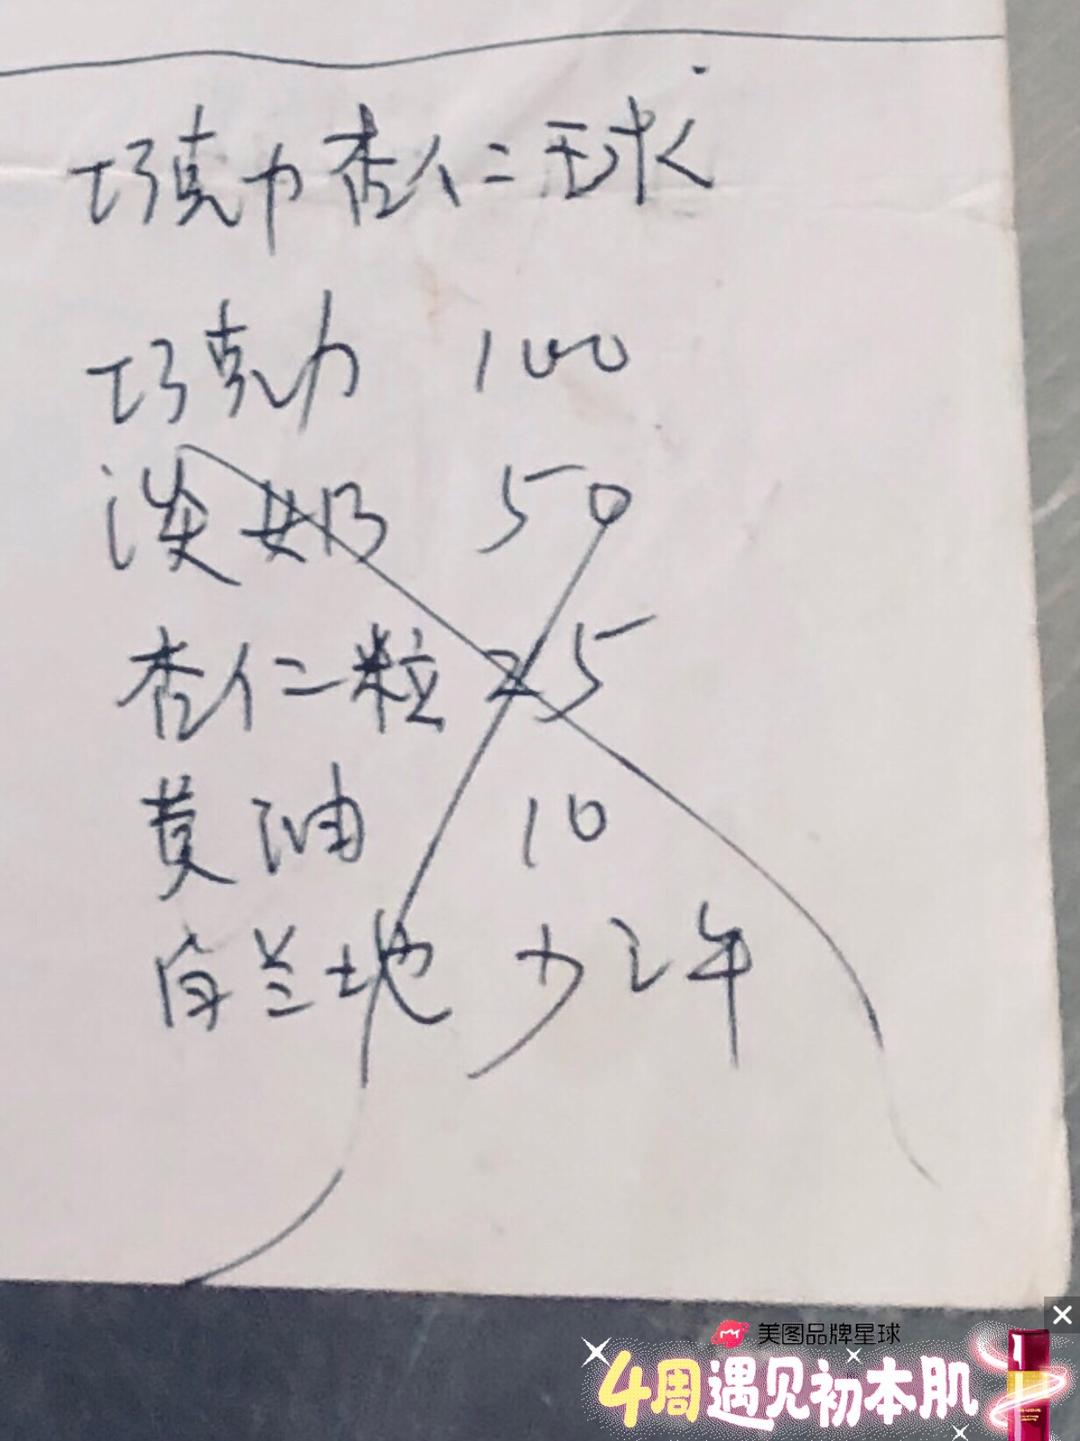 巧克力杏仁球
巧克力 100
淡奶 50
杏仁粒 25
黄油 10
白兰地 少许
美图品牌星球
4周遇见初本肌